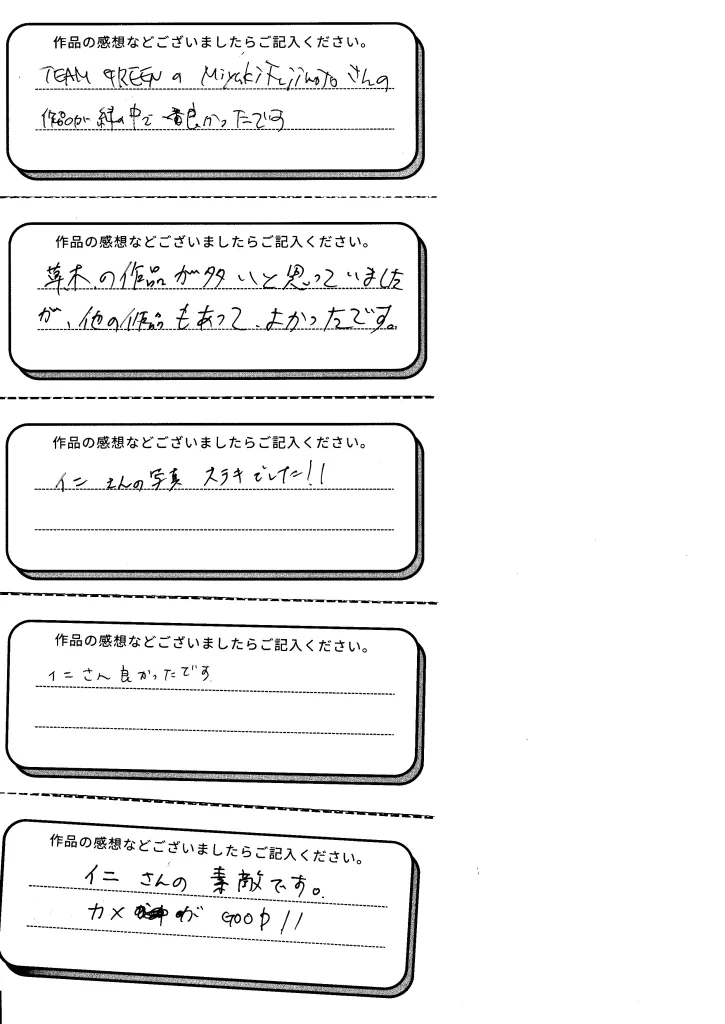 作品の感想などございましたらご記入ください。
TEAM GREEN の Miyuki Fujimoto さんの
作品が緑の中で一番良かったです
作品の感想などございましたらご記入ください。
草木の作品が多いと思っていました
が、他の作品もあって、よかったです。
作品の感想などございましたらご記入ください。
イニさんの写真 ステキでした!!
作品の感想などございましたらご記入ください。
イニさん良かったです
作品の感想などございましたらご記入ください。
イニさんの素敵です。
カメが GOOD!!